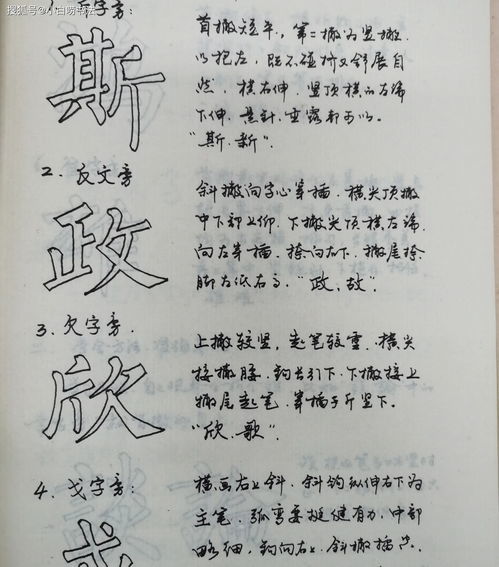 搜狐号@小白唠书法
字旁:
斯
首撇短平,第二撇为竖撇.
以抱左,既不碰撞又舒展自
然,横右伸,竖顶横的左端
下伸.悬针.垂露都可以.
"斯.新".
2. 反文旁
政
斜撇向字心穿插.横尖顶撇
中下部上仰.下撇尖顶横左端
向左穿插,捺向右下,撇尾捺
脚左低右高."政.故".
3. 欠字旁.
欣
上撇较竖,起笔较重.横尖
接撇腰.钩长引下.下撇接上
撇尾起笔.穿插于斤竖下.
"欣.歌".
4. 戈字旁:
横画右上斜.斜钩纵伸右下为
主笔.弧弯要挺健有力,中部
略细,钩向右上.斜撇插